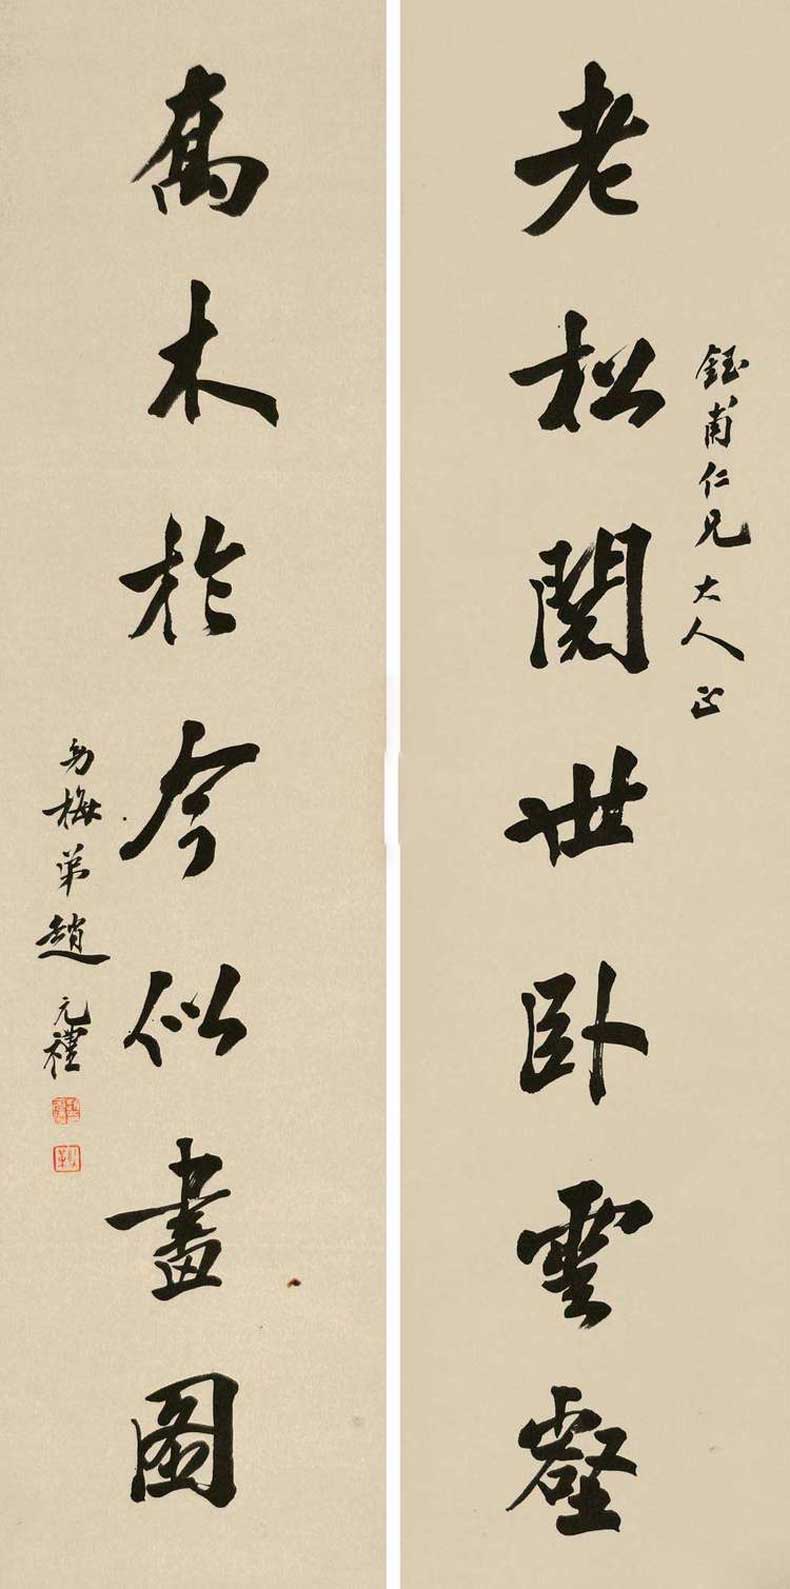 鈺甫仁兄大人正
老松閱世卧雲壑
喬木於今似畫圖
幼梅弟趙元禮